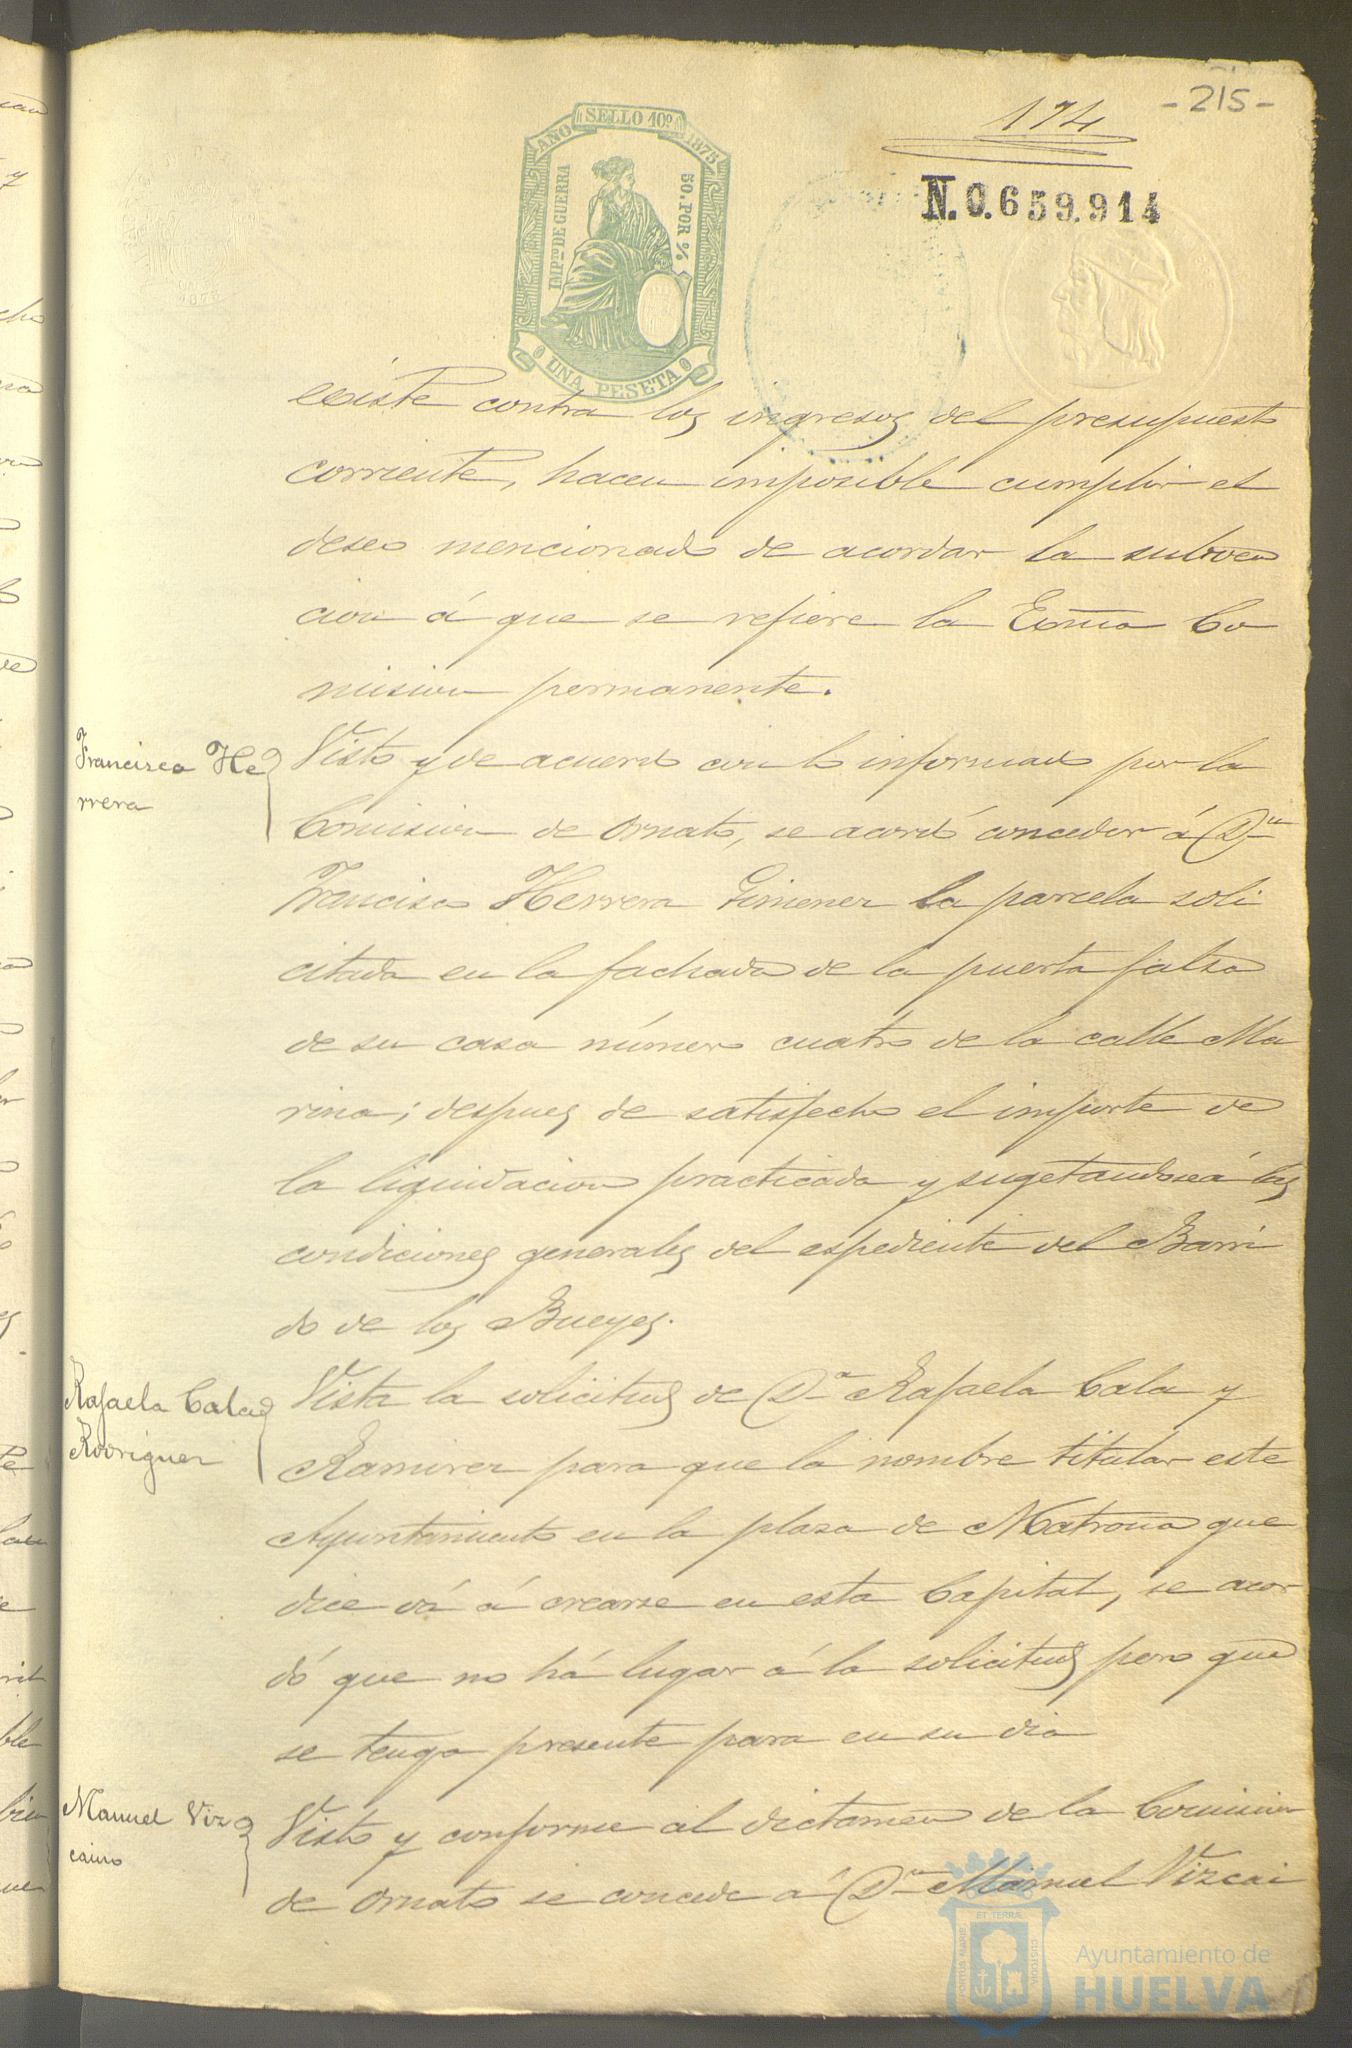 - 215 -
174
N. 0.659.914
AÑO SELLO 10º 1875
IMPTO DE GUERRA
50. POR %
UNA PESETA
existe contra los ingresos del presupuesto
corriente, hacen imposible cumplir el
deseo mencionado de acordar la subven
cion á que se refiere la Exma Co
mision permanente.
Francisco He
rrera
Visto y de acuerdo con lo informado por la
Comision de Ornato, se acordó conceder á Dn
Francisco Herrera Gimenez la parcela soli
citada en la fachada de la puerta falsa
de su casa número cuatro de la calle Ma
rina; despues de satisfecho el importe de
la liquidacion practicada y sugetandose á las
condiciones generales del espediente del Barri
do de los Bueyes.
Rafaela Cala
Rodriguez
Vista la solicitud de Da Rafaela Cala y
Ramirez para que la nombre titular este
Ayuntamiento en la plaza de Matrona que
dice vá á crearse en esta Capital, se acor
dó que no há lugar á la solicitud pero que
se tenga presente para en su dia
Manuel Viz
caino
Visto y conforme al dictamen de la Comision
de Ornato se concede á Dn Manuel Vizcai
PORTUS MARIS ET TERRAE CUSTODIA
Ayuntamiento de
HUELVA